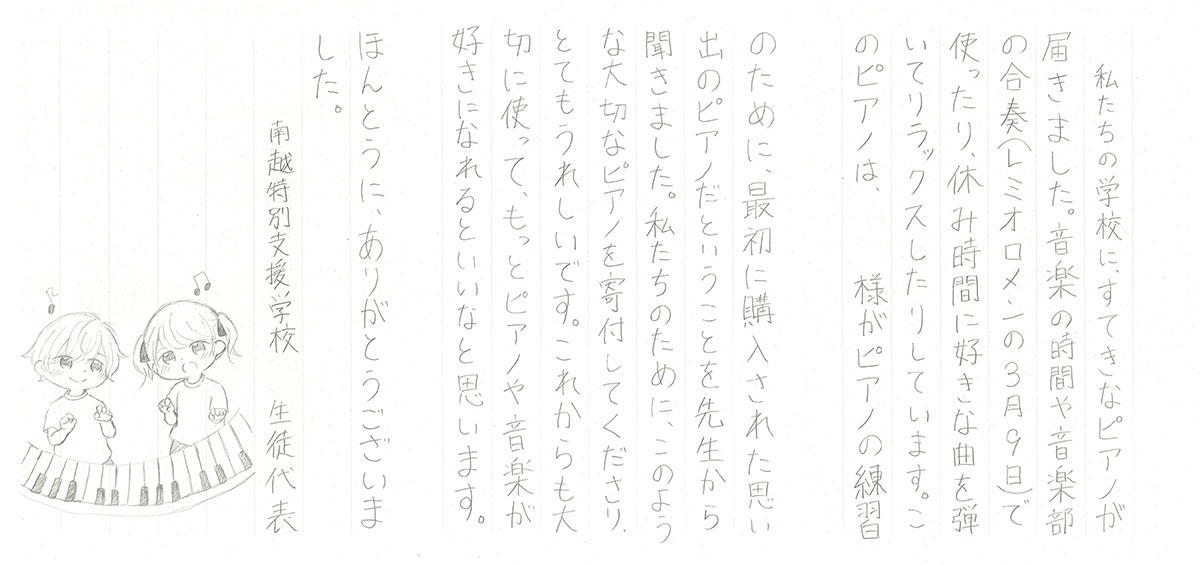 私たちの学校に、すてきなピアノが
届きました。音楽の時間や音楽部
の合奏(レミオロメンの3月9日)で
使ったり、休み時間に好きな曲を弾
いてリラックスしたりしています。こ
のピアノは、 様がピアノの練習
のために、最初に購入された思い
出のピアノだということを先生から
聞きました。私たちのために、このよう
な大切なピアノを寄付してくださり、
とてもうれしいです。これからも大
切に使って、もっとピアノや音楽が
好きになれるといいなと思います。
ほんとうに、ありがとうございま
した。
南越特別支援学校 生徒代表